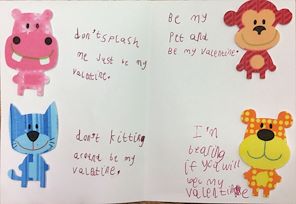 don'tsplash
me just be my
valintine.
Be my
pet and
Be my valentine.
don't kitting
around be my
valentine.
I'm
bearing
if you will
be my
valentine